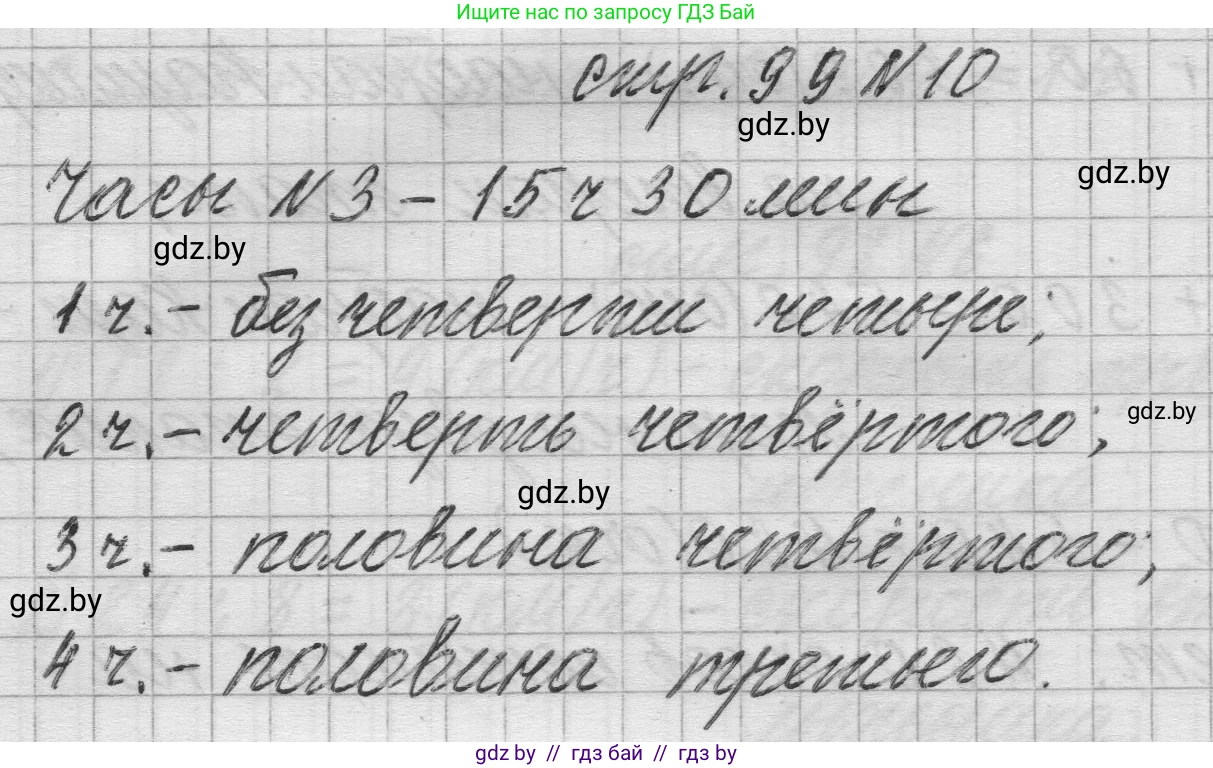 Ищите нас по запросу ГДЗ Бай
стр. 99 N 10
gdz.by
gdz.by
Часы N 3 - 15 ч 30 мин
gdz.by
1 ч. - без четверти четыре;
2 ч. - четверть четвёртого;
gdz.by
gdz.by
3 ч. - половина четвёртого;
gdz.by
4 ч. - половина третьего.
gdz.by // гдз бай // гдз by